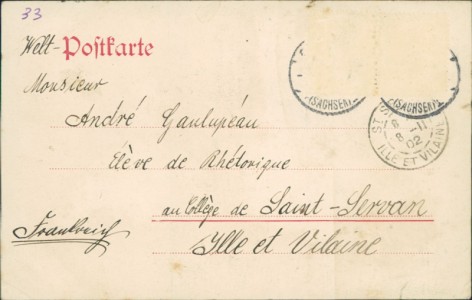 33
Welt-Postkarte
Monsieur
André Gaulupéau
Élève de Rhétorique
au Collège de Saint-Servan
Ille et Vilaine
Frankreich
(SACHSEN)
(SACHSEN)
8 -11
02
ILLE ET VILAINE